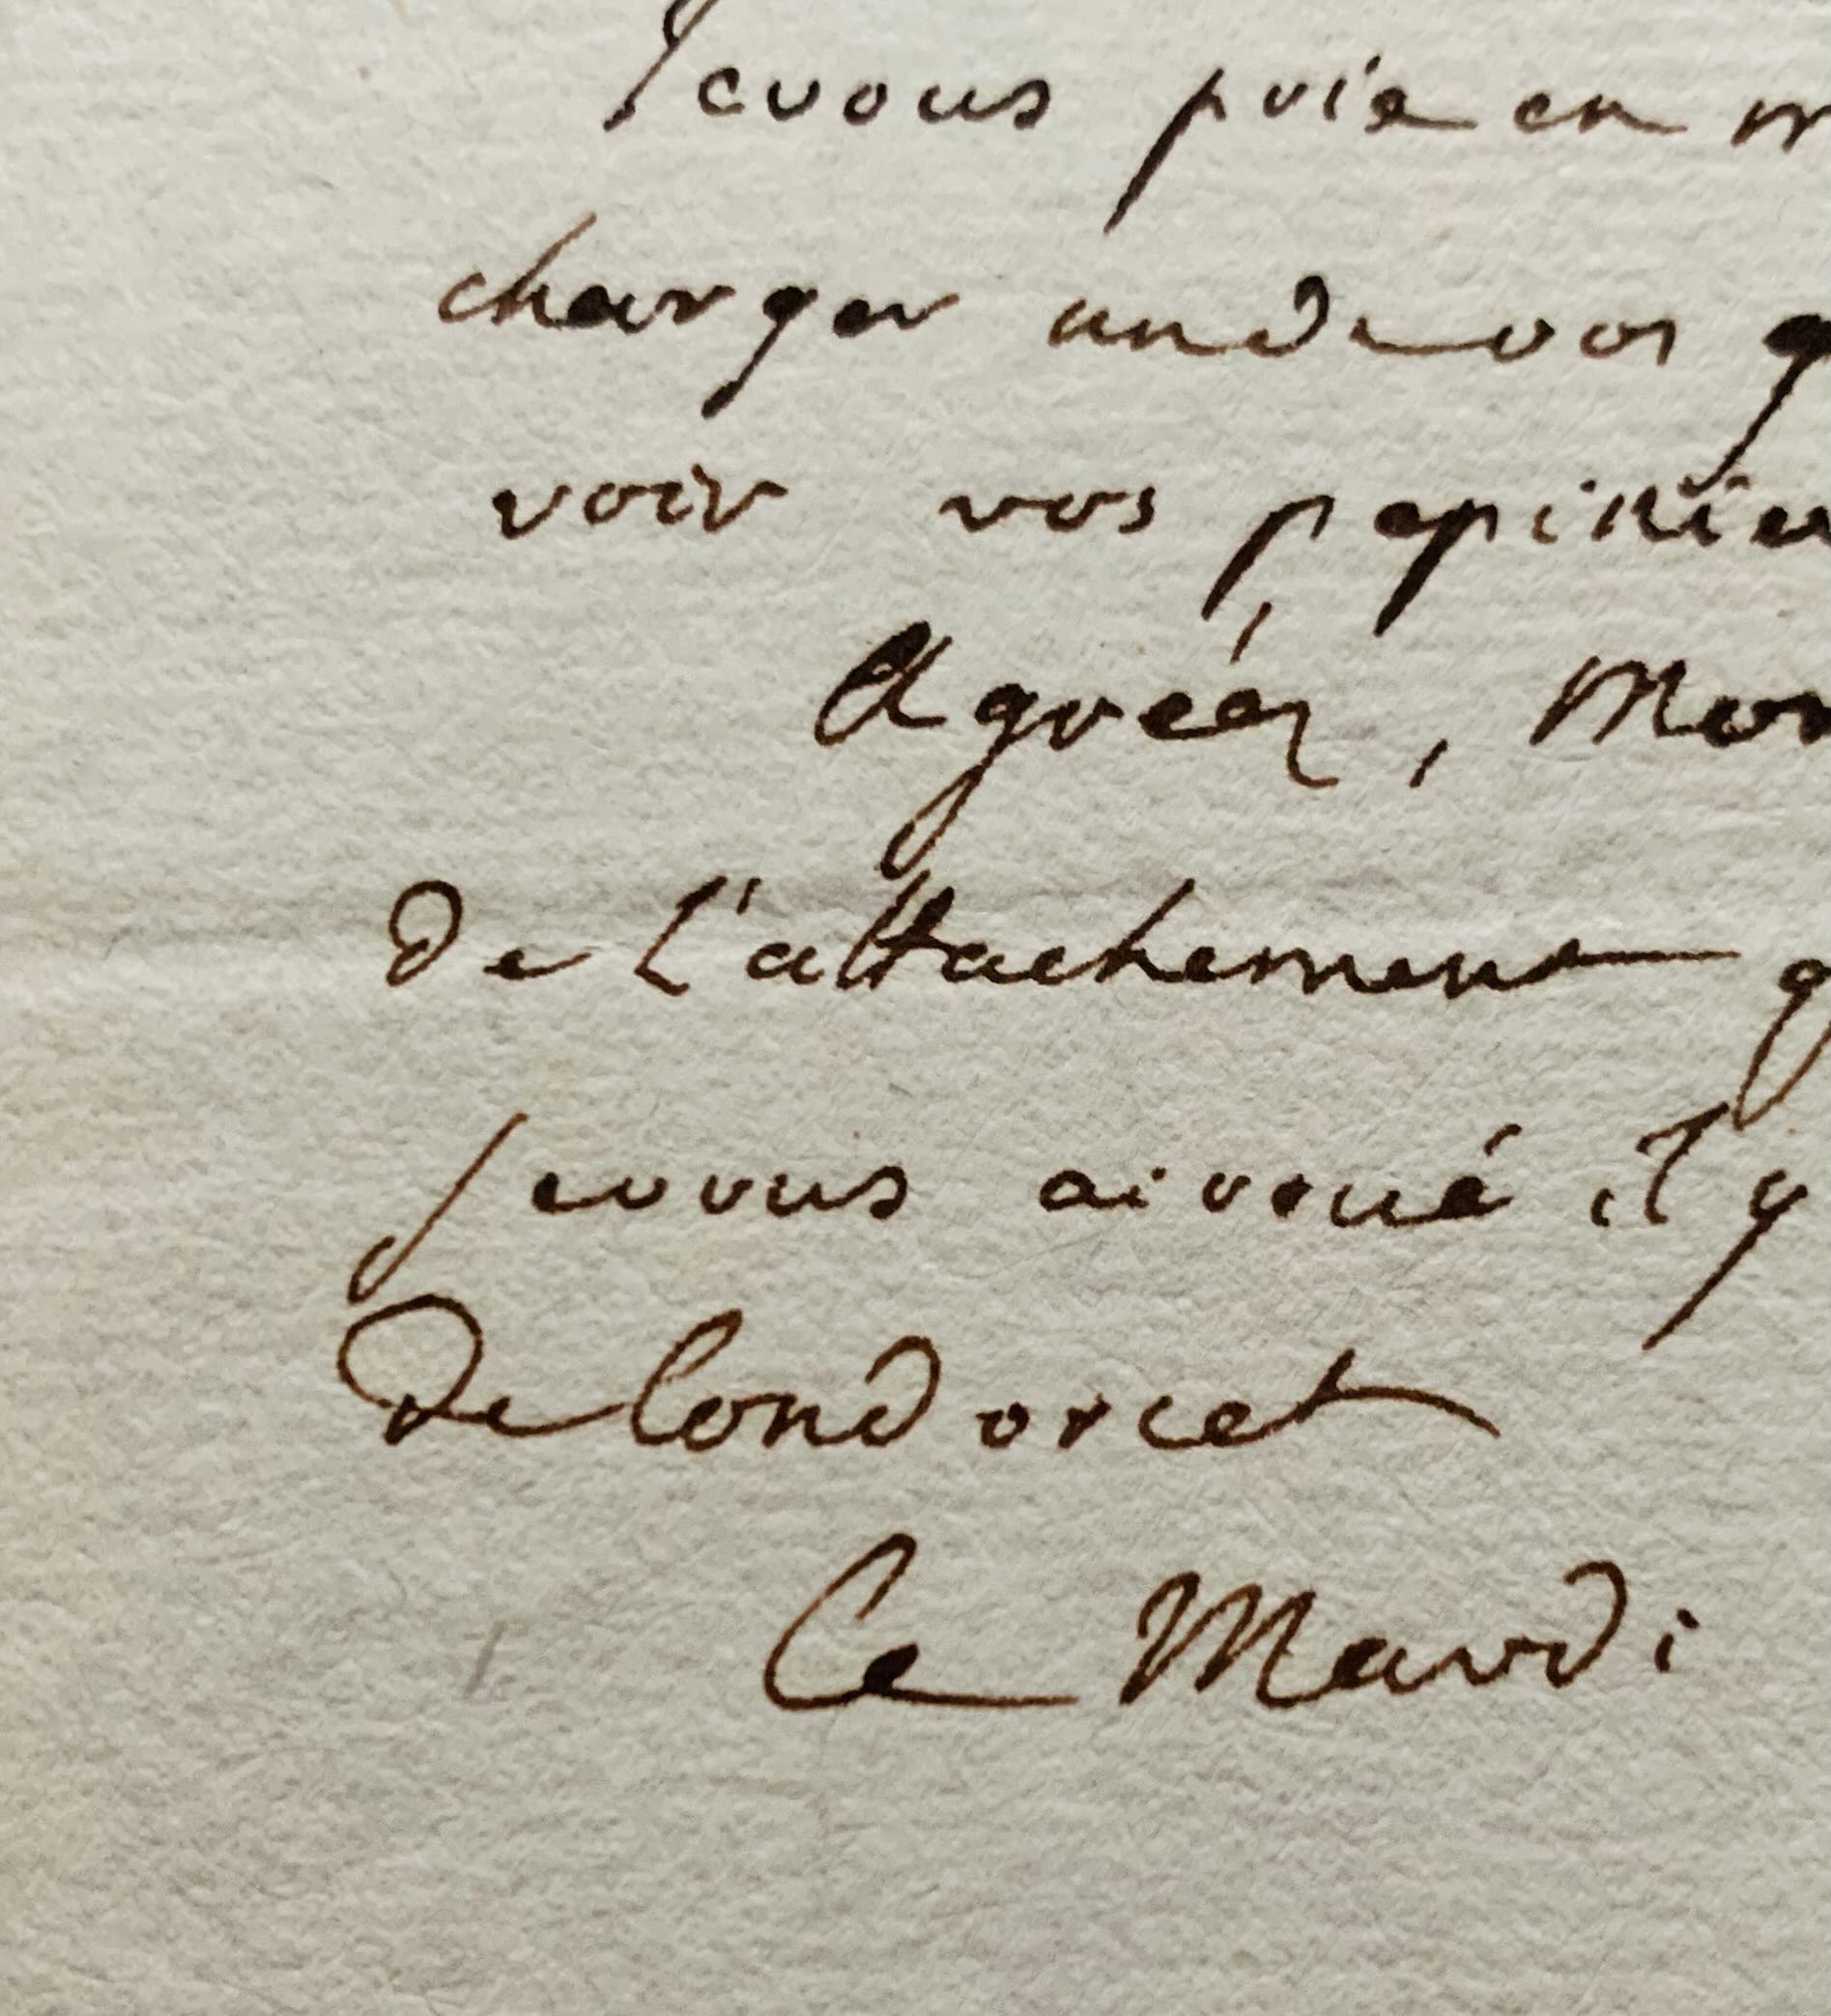 Je vous prie en m
charger un de vos g
voir vos pepinier
Agréez, Mon
De L'attachement q
je vous ai voué il y
De Condorcet
Ce Mardi